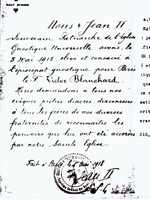 Nous † Jean II
Souverain Patriarche de l'Eglise
Gnostique Universelle avons, le
5 Mai 1918 élu et consacré à
l'épiscopat gnostique pour Paris
le T Victor Blanchard
Nous demandons à tous nos
évêques prêtres diacres diaconesses
à tous les frères de nos diverses
fraternités de reconnaître les
pouvoirs qui lui ont été
par notre Sainte Eglise.
Mai 1918
† Jean II